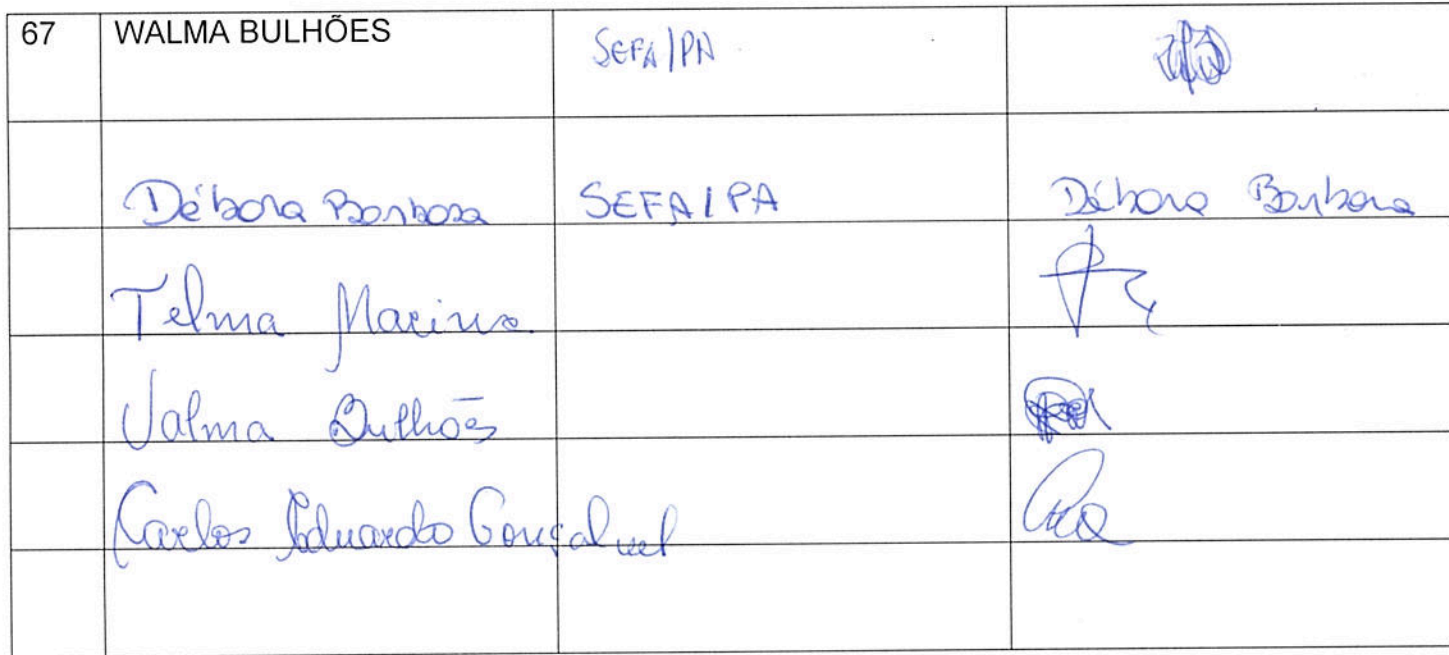 67 WALMA BULHÕES SEFA/PA
Débora Barbosa SEFA/PA Débora Barbosa
Telma Macius
Valma Bulhões
Carlos Eduardo Gonçalves